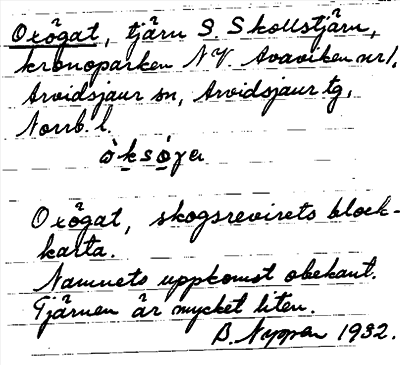 Oxögat, tjärn S. Skollstjärn,
kronoparken N.V. Avaviken nr 1,
Arvidsjaur sn, Arvidsjaur tg,
Norrb. l.
Oxögat, skogsrevirets block-
karta.
Namnets uppkomst obekant.
Tjärnen är mycket liten.
B. Nyppen 1932.